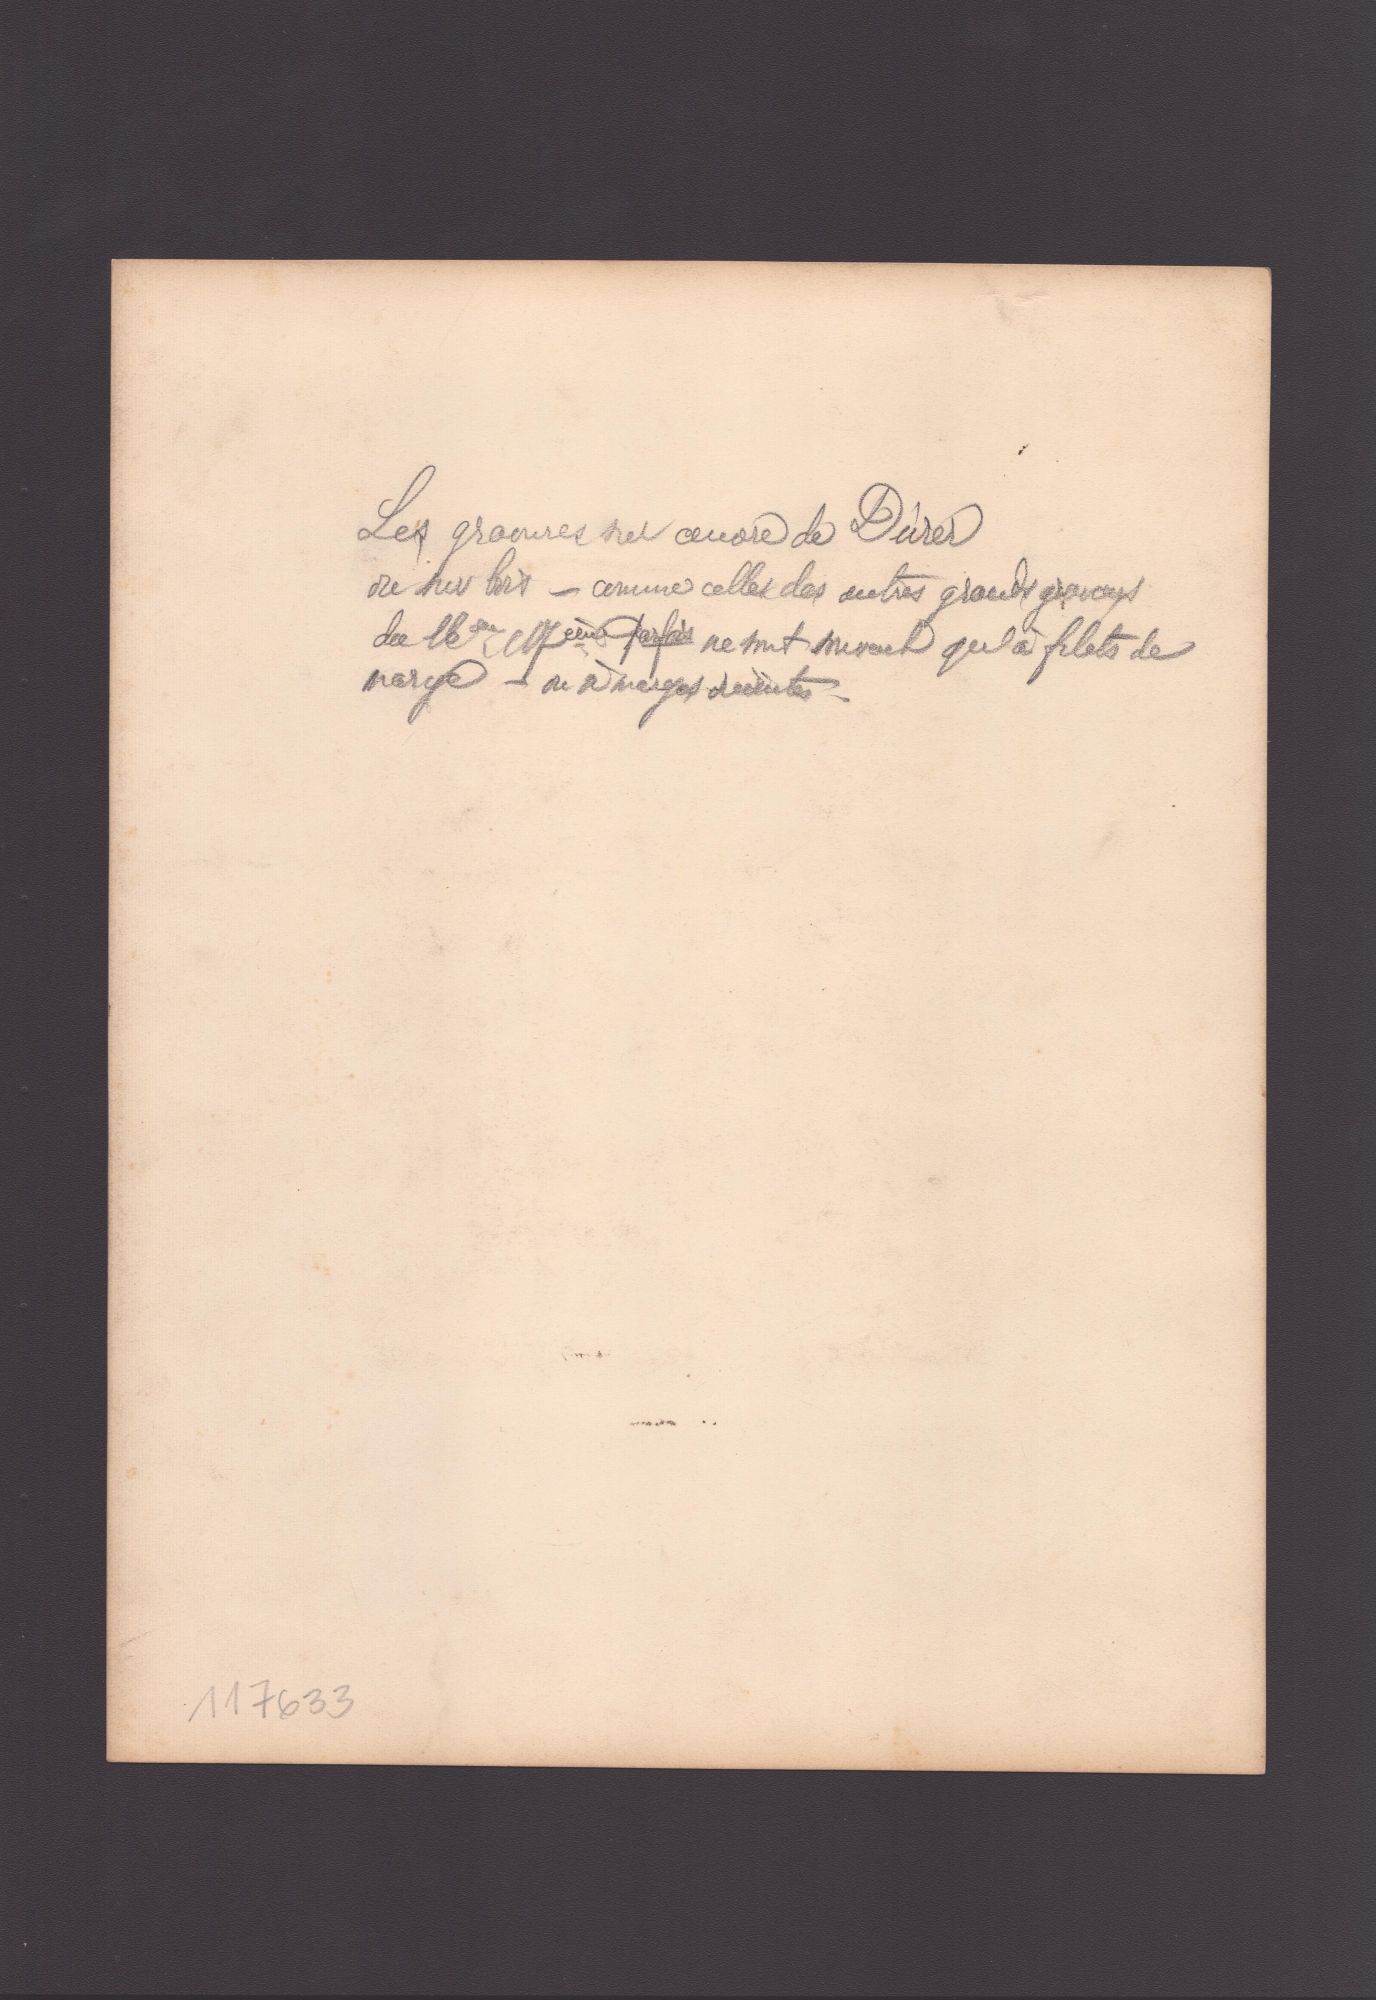 Les gravures sur cuivre de Dürer
ou sur bois – comme celles des autres grands graveurs
du 16ème, 17ème parfois ne sont souvent qu'à filets de
marge – ou à marges réduites –
117633